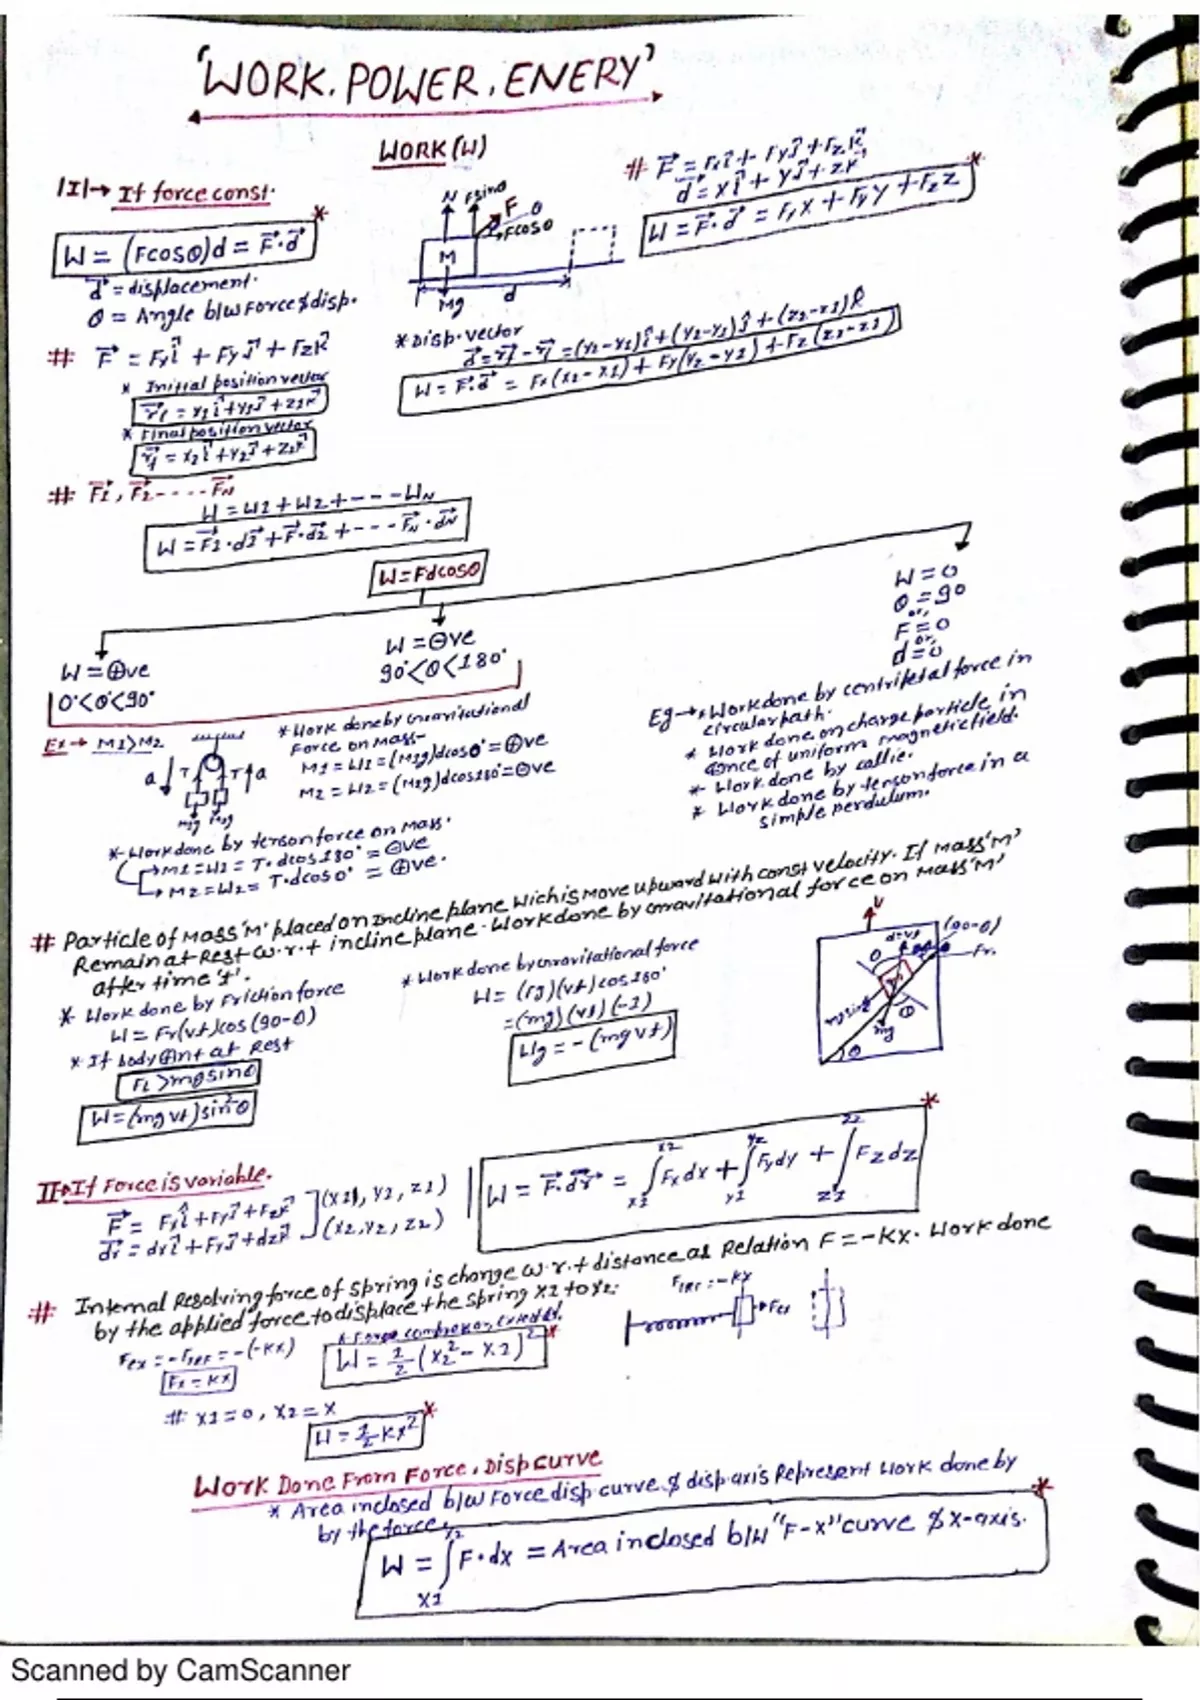 'WORK, POWER, ENERY'
WORK (W)
|I|→ If force const.
W = (Fcosθ)d = F⃗·d⃗
d⃗ = displacement.
θ = Angle b/w Force & disp.
N Fsinθ
F θ
Fcosθ
M
Mg d
# F⃗ = Fxî + Fyĵ + Fzk̂
d⃗ = xî + yĵ + zk̂
W = F⃗·d⃗ = FxX + Fyy + Fzz
# F⃗ = Fxî + Fyĵ + Fzk̂
* Initial position vector
r⃗i = x1î + y1ĵ + z1k̂
* Final position vector
r⃗f = x2î + y2ĵ + z2k̂
* Disp. vector
d⃗ = r⃗f - r⃗i = (x2-x1)î + (y2-y1)ĵ + (z2-z1)k̂
W = F⃗·d⃗ = Fx(x2-x1) + Fy(y2-y1) + Fz(z2-z1)
# F⃗1, F⃗2 - - - - F⃗N
W = W1 + W2 + - - - WN
W = F⃗1·d⃗1 + F⃗·d⃗2 + - - - F⃗N·d⃗N
W = Fdcosθ
W = ⊕ve
0°<θ<90°
W = ⊖ve
90°<θ<180°
W = 0
θ = 90
or,
F = 0
or,
d = 0
Ex → M1>M2
a T T a
m1g m2g
* Work done by Gravitational
Force on mass-
M1 = W1 = (M1g)dcos0° = ⊕ve
M2 = W2 = (M2g)dcos180° = ⊖ve
* Work done by tension force on mass.
→ M1 = W1 = T·dcos180° = ⊖ve
→ M2 = W2 = T·dcos0° = ⊕ve.
Eg → * Work done by centripetal force in
circular path.
* Work done on charge particle in
of uniform magnetic field.
* Work done by
* Work done by tenson force in a
simple pendulum.
# Particle of Mass 'M' placed on Incline plane Wich is Move upward with const velocity. If mass 'M'
Remain at Rest w.r.t incline plane. Work done by Gravitational force on mass 'M'
after time 't'.
* Work done by Friction force
W = Fr(vt)cos(90-θ)
* If body at Rest
W = (mgvt)sin²θ
* Work done by Gravitational force
= (mg)(vt)(-1)
Wg = -(mgvt)
v
d=vt (90-θ)
θ Fr.
mgsinθ
mg
θ
II → If Force is variable.
F⃗ = Fxî + Fyĵ + Fzk̂ ] (x1, y1, z1)
d⃗r = dxî + Fyĵ + dzk̂ (x2, y2, z2)
W = F⃗·d⃗r = ∫x1x2 Fxdx + ∫y1y2 Fydy + ∫z1z2 Fzdz
# Internal Resolving force of spring is change w.r.t distance as Relation F = -Kx. Work done
by the applied force to displace the spring X1 to X2.
= -(-Kx)
Fx = Kx
W = 1/2 (x2² - x1)²
# X1 = 0, X2 = X
W = 1/2 Kx²
Work Done From Force, Disp curve
* Area inclosed b/w Force disp. curve & disp axis Represent Work done by
by the force.
W = ∫x1x2 F·dx = Area inclosed b/W "F-x" curve & x-axis.
Scanned by CamScanner